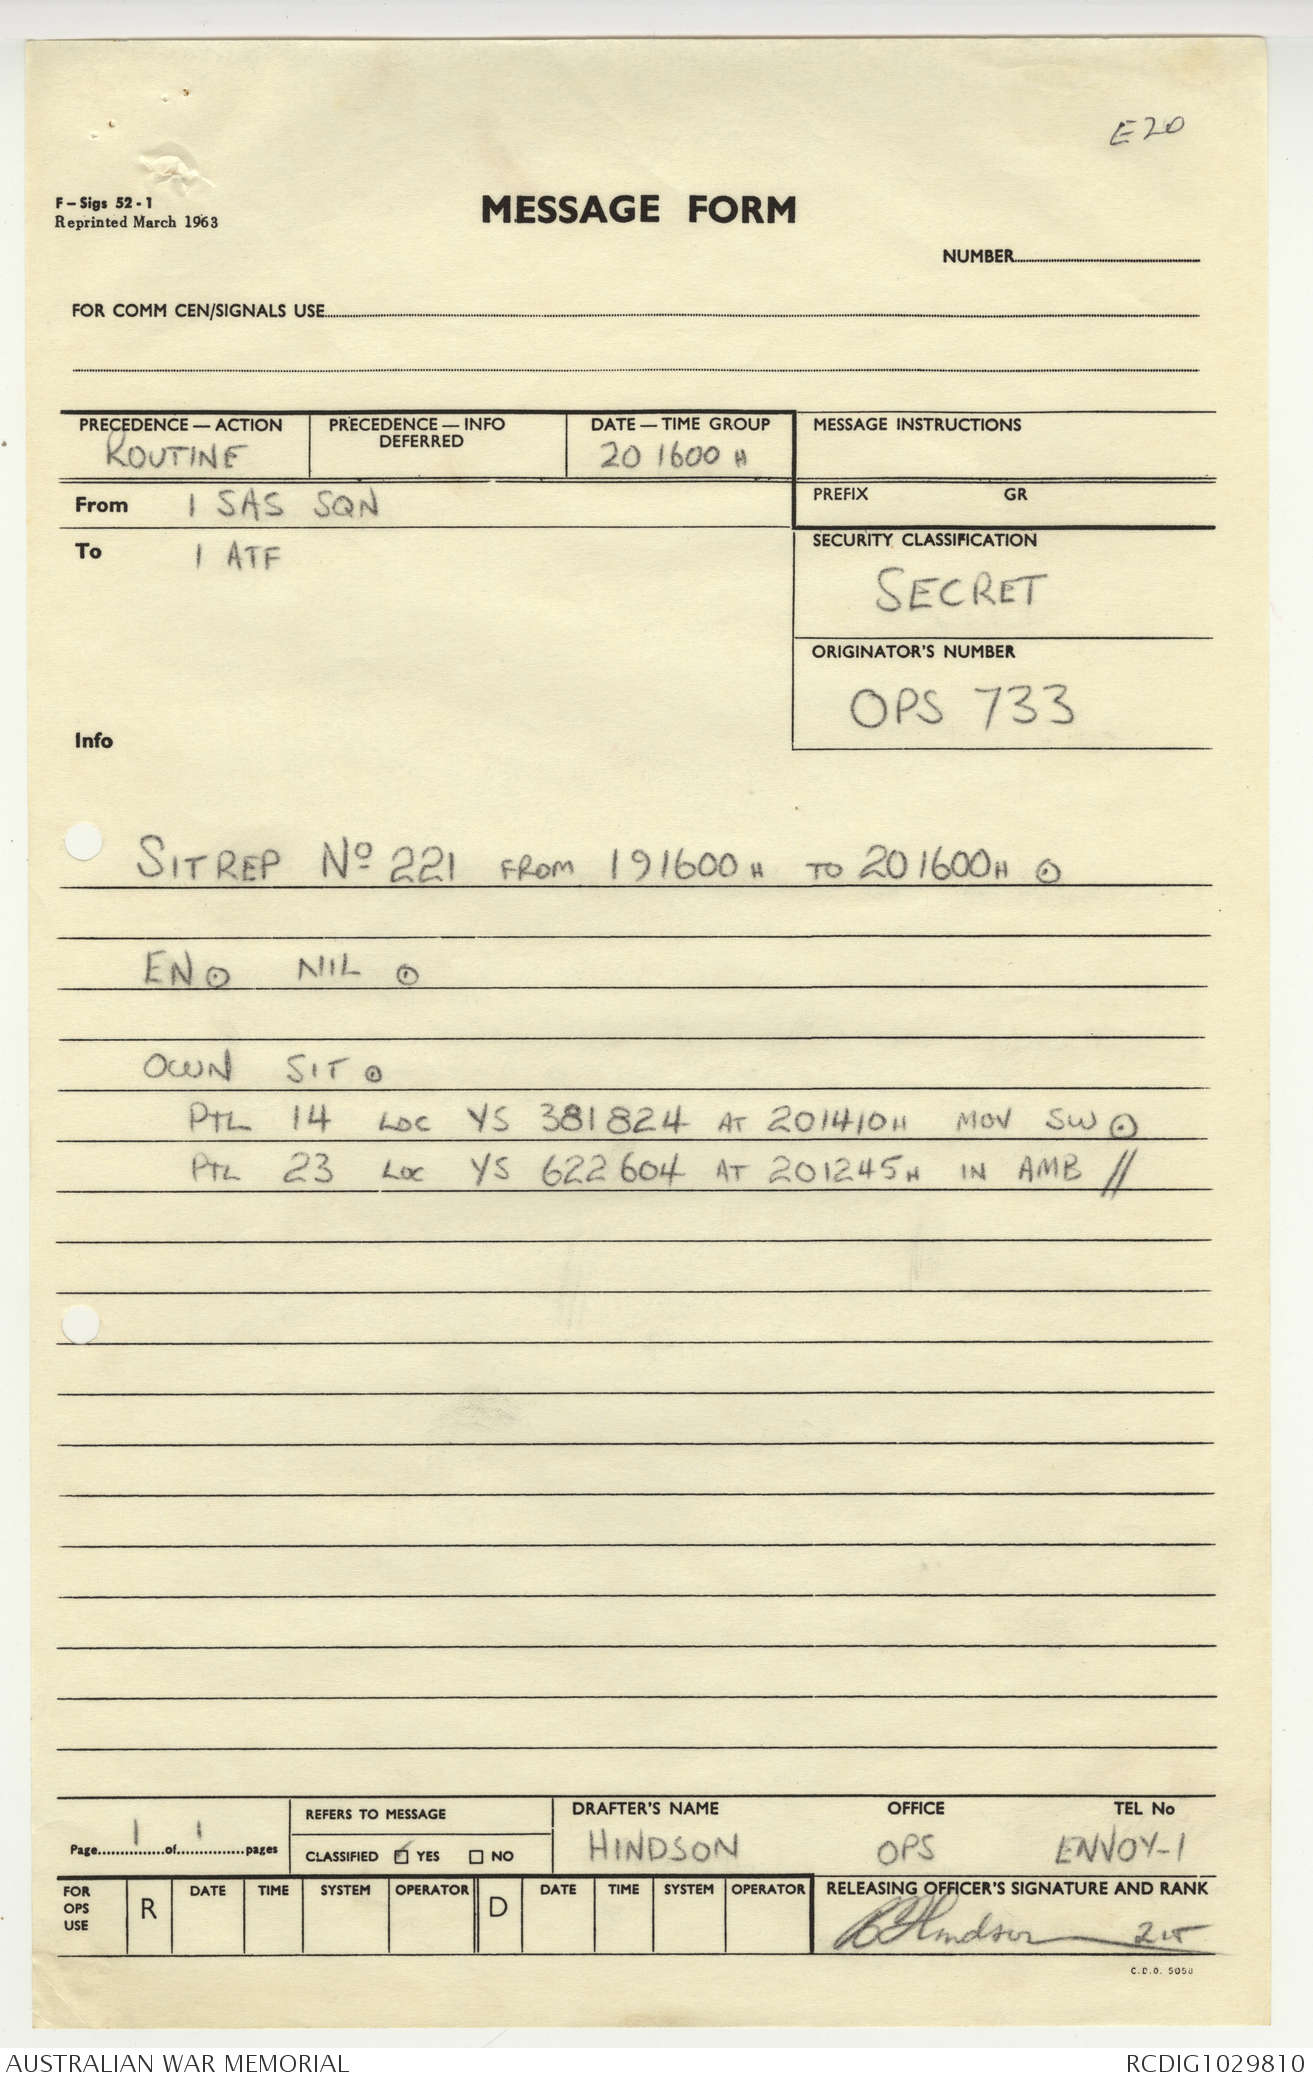 E20
F – Sigs 52 - 1
Reprinted March 1963
MESSAGE FORM
NUMBER
FOR COMM CEN/SIGNALS USE
PRECEDENCE — ACTION
ROUTINE
PRECEDENCE — INFO
DEFERRED
DATE — TIME GROUP
201600H
MESSAGE INSTRUCTIONS
From 1 SAS SQN
PREFIX GR
To 1 ATF
SECURITY CLASSIFICATION
SECRET
ORIGINATOR'S NUMBER
OPS 733
Info
SITREP Nº 221 FROM 191600H TO 201600H ⊙
EN ⊙ NIL ⊙
OWN SIT ⊙
PTL 14 LOC YS 381824 AT 201410H MOV SW ⊙
PTL 23 LOC YS 622604 AT 201245H IN AMB //
Page 1 of 1 pages
REFERS TO MESSAGE
CLASSIFIED ☑ YES ☐ NO
DRAFTER'S NAME
HINDSON
OFFICE
OPS
TEL No
ENVOY-1
FOR
OPS
USE
R DATE TIME SYSTEM OPERATOR D DATE TIME SYSTEM OPERATOR
RELEASING OFFICER'S SIGNATURE AND RANK
Hindson
C.D.O. 5050
AUSTRALIAN WAR MEMORIAL
RCDIG1029810